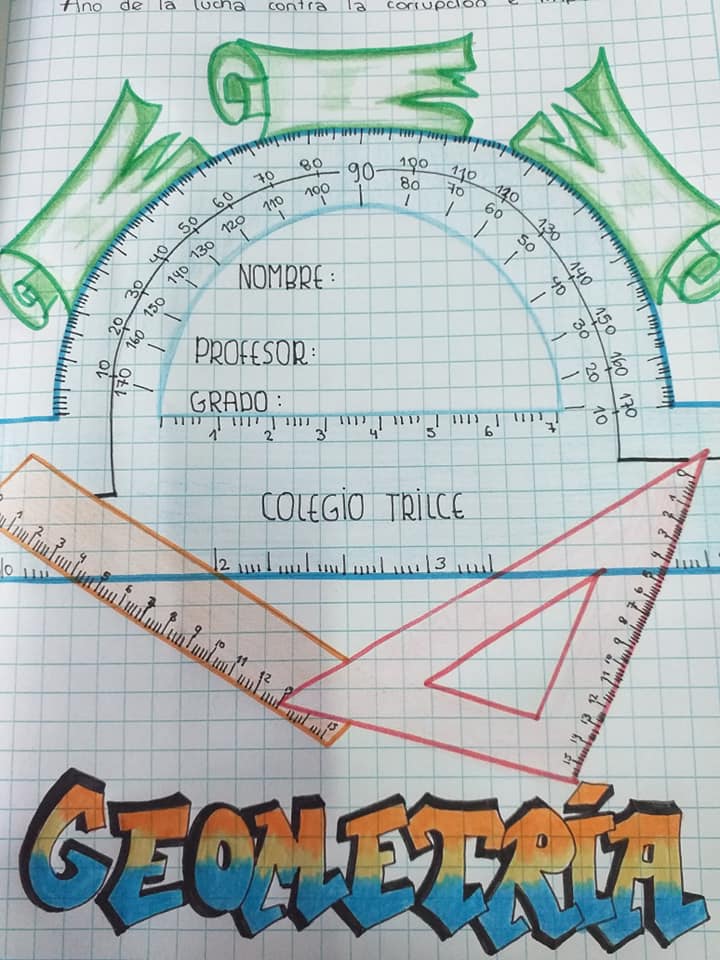 Año de la lucha contra la corrupción e
10 20 30 40 50 60 70 80 90 100 110 120 130 140 150 160 170
170 160 150 140 130 120 110 100 80 70 60 50 40 30 20 10
NOMBRE:
PROFESOR:
GRADO:
1 2 3 4 5 6 7
COLEGIO TRILCE
2 3
1 2 3 4 5 6 7 8 9 10 11 12
0 1 2 3 4 5 6 7 8 9 10 11 12 13 14 15
GEOMETRÍA